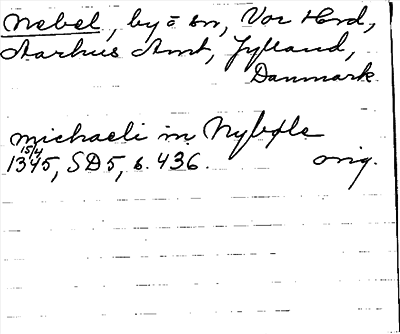 Nebel, by o sn, Vor Hrd,
Aarhus Amt, Jylland,
Danmark
michaeli in Nybøle
15/4
1345, SD5, s. 436. orig.